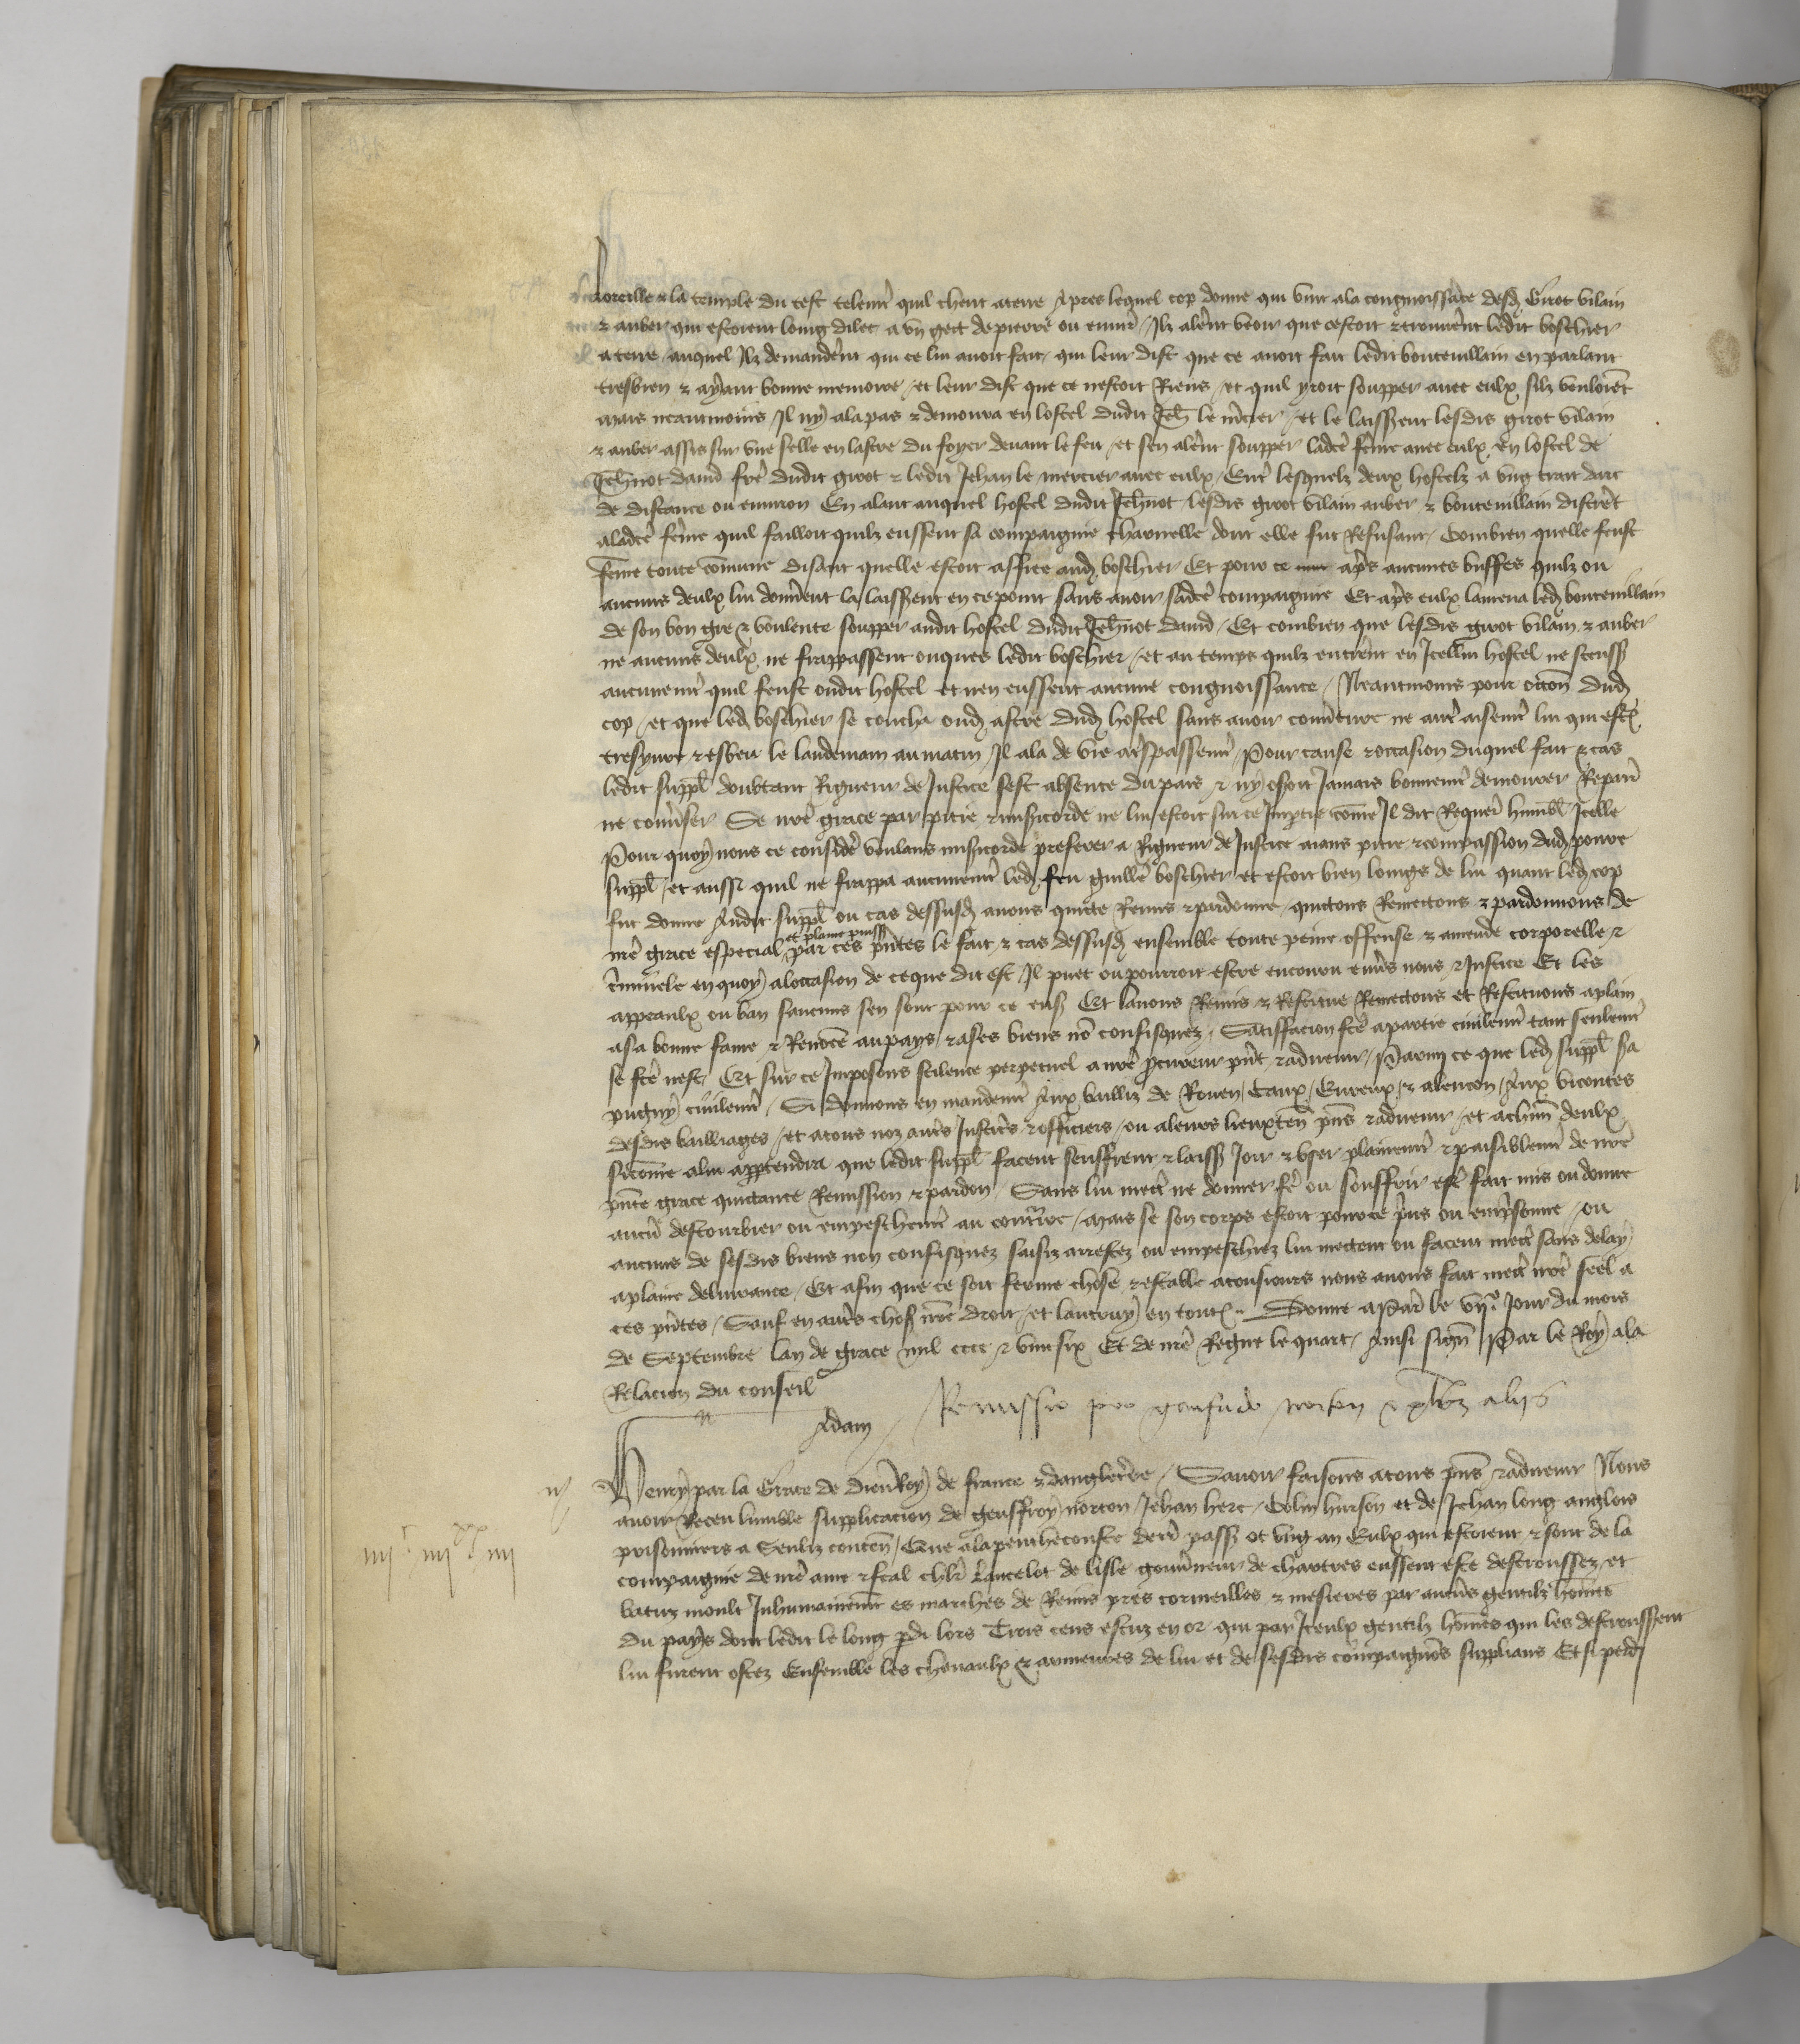 loreille & la temple du cest telemt quil cheut aterre Apres lequel cop donne qui vint ala congnoissace desd Girot vilain
& auber qui estoient loing dilec a vn gect de pierre ou envir Ilz alerent veoir que cestoit & trouverent ledit boschier
aterre auquel Ilz demanderent qui ce lui auoit fait qui leur dist que ce auoit fait ledit bouteuillain en parlant
tresbien & ayant bonne memoire et leur dist que ce nestoit Riens et quil yroit soupper auec eulx silz vouloient
mais neantmoins Il ny ala pas & demoura en lostel dudit Jeh le mcier et le laisserent lesdis girot vilain
& auber assis sur vne selle en lastre du foyer deuant le feu et sen alerent soupper ladce feme auec eulx en lostel de
Jehnot dauid fre dudit girot & ledit Jehan le mercier auec eulx Entre lesquelz deux hostelz a vng trait darc
de distance ou enuiron En alant auquel hostel dudit Jehnot lesdis girot vilain auber & bouteuillain distrent
aladce feme quil failloit quilz eussent sa compaignie charnelle dont elle fut Refusant Combien quelle feust
feme toute comune disant quelle estoit assree aud boschier Et pour ce apres aucunes buffes quilz ou
aucuns deulx lui donnerent la laisserent en ce point sans auoir sadce compaignie Et apres eulx lamena led bouteuillain
de son bon gre & voulente soupper audit hostel dudit Jehnot dauid Et combien que lesdis girot vilain & auber
ne aucuns deulx ne frappassent onques ledit boschier et au temps quilz entrerent en Icellui hostel ne sceuss
aucunemt quil feust oudit hostel et nen eussent aucune congnoissance Neantmoins pour occon dud
cop et que led boschier se coucha oud astre dud hostel sans auoir couuerture ne autre aisemt lui qui est
tresyure & esbeu le landemain au matin Il ala de vie a trespassemt Pour cause & occasion duquel fait & cas
ledit suppl doubtant Rigueur de Justice sest absente du pais & ny oseroit Jamais bonnemt demourer Repair
ne conuser Se nre grace par pitie & misicorde ne lui estoit sur ce Impartie come Il dit Requer humbl Icelle
Pour quoy nous ce considere voulans misicorde preferer a Rigueur de Justice aians pitie & compassion dud poure
suppl et aussi quil ne frappa aucunemt led feu guille boschier et estoit bien loings de lui quant led cop
fut donne Audit suppl ou cas dessusd auons quicte Remis & pardonne quictons Remectons & pardonnons de
nre grace especial et plaine puiss par ces pntes le fait & cas dessusd ensemble toute peine offense & amende corporelle &
criminele en quoy aloccasion de ceque dit est Il puet ou pourroit estre encouru enuers nous & Justice Et les
appeaulx ou ban saucuns sen sont pour ce ens Et lauons Remis & Restitue Remectons et Restituons aplain
asa bonne fame & Renomee au pays & ases biens no confisquez Satisfacion fce apartie ciuilemt tant seulemt
se fce nest Et sur ce Imposons scilence perpetuel a nre procureur pnt & aduenir Parmi ce que led suppl sa
pugny ciuilemt Si donnons en mandemt Aux bailliz de Rouen Caux Eureux & alencon Aux vicontes
desdis bailliages et atous noz autres Justiciers & officiers ou aleurs lieuxten pns & aduenir et achun deulx
sicome alui appertendra que ledit suppl facent seuffrent & laiss Joir & vser plainemt & paisiblemt de nre
pnte grace quictance Remission & pardon Sans lui mectre ne donner fe ou souffrir estre fait mis ou donne
aucun destourbier ou empeschemt au contraire Mais se son corps estoit pource pris ou emprisonne ou
aucuns de sesdis biens non confisquez saisiz arrestez ou empeschiez lui mectent ou facent mectre sans delay
aplaine deliurance Et afin que ce soit ferme chose & estable atousiours nous auons fait mectre nre seel a
ces pntes Sauf en autres chos nre droit et lautruy en tout Donne a Par le vije Jour du mois
de Septembre lan de grace mil cccc & vint six Et de nre Regne le quart Ainsi sign Par le Roy ala
Relacion du conseil
Adam Remissio pro gaufrido norton & plbz alijs
Henry par la Grace de Dieu Roy de france & dangleterre Sauoir faisons atous pns & aduenir Nous
auoir Receu lumble supplicacion de geuffroy norton Jehan herc Colin hurson et de Jehan long anglois
prisonniers a Senliz conten Que ala penthecouste dern pass ot vng an Eulx qui estoient & sont de la
compaignie de nre ame & feal chlr Lancelot de lisle gouuerneur de chartres eussent este destroussez et
batuz moult Inhumainemt es marches de Reims pres cormeilles & mesieres par aucuns gentilz homes
du pays dont ledit le long pdi lors Trois cens escuz en or qui par Iceulx gentilz homes qui les destrousserent
lui furent ostez Ensemble les cheuaulx & armeures de lui et de sesdis compaignons supplians Et si perd